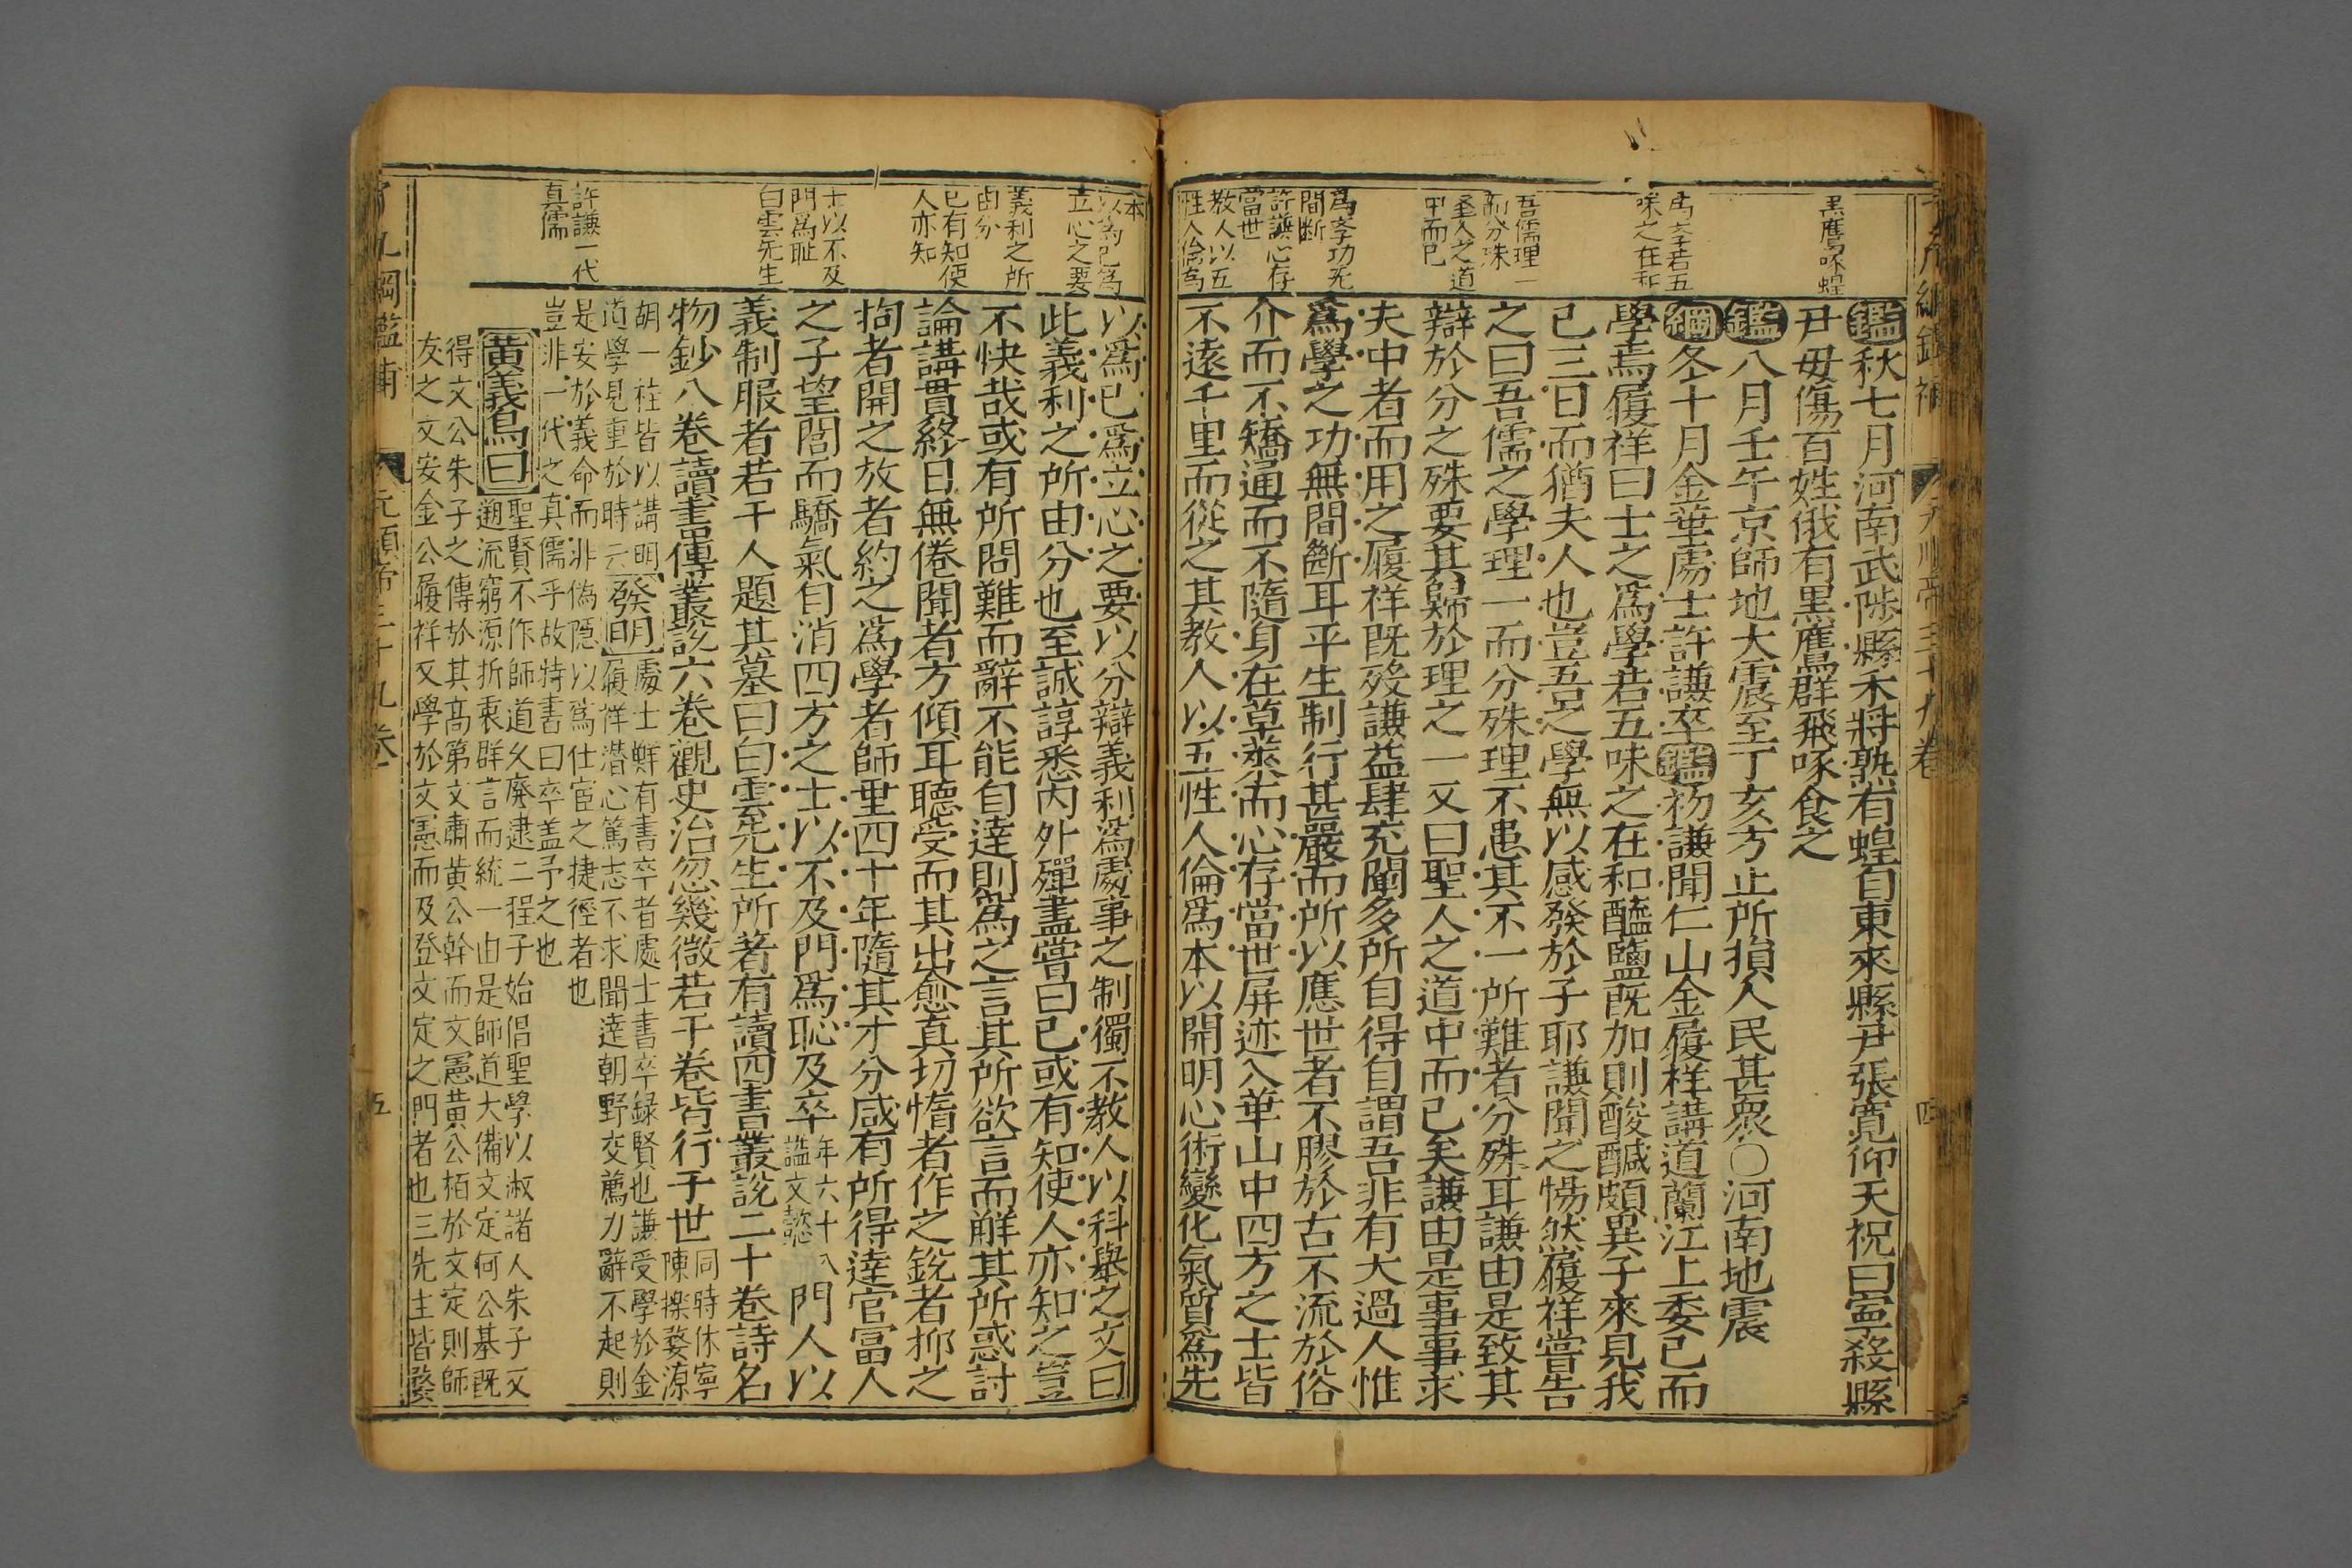 黒鷹啄蝗
爲學若五
味之在和
吾儒理一
而分殊
聖人之道
中而已
爲學功无
間断
許謙心存
當世
教人以五
性人倫爲
鑑秋七月河南武陟縣禾將熟有蝗自東來縣尹張寛仰天祝曰寧殺縣
尹毋傷百姓俄有黒鷹群飛啄食之
鑑八月壬午京師地大震至丁亥方止所損人民甚衆○河南地震
綱冬十月金華處士許謙卒鑑初謙聞仁山金履祥講道蘭江上委已而
學焉履祥曰士之爲學若五味之在和醯鹽旣加則酸鹹頗異子來見我
已三日而猶夫人也豈吾之學無以感發於子耶謙聞之惕然履祥嘗告
之曰吾儒之學理一而分殊理不患其不一所難者分殊耳謙由是致其
辯於分之殊要其歸於理之一又曰聖人之道中而已矣謙由是事事求
夫中者而用之履祥既殁謙益肆充闡多所自得自謂吾非有大過人惟
爲學之功無間斷耳平生制行甚嚴而所以應世者不膠於古不流於俗
介而不矯通而不隨身在草萊而心存當世屏迹入華山中四方之士皆
不遠千里而從之其教人以五性人倫爲本以開明心術變化氣質爲先
四
本
以爲己爲
立心之要
義利之所
由分
已有知使
人亦知
士以不及
門爲耻
白雲先生
許謙一代
真儒
以爲已爲立心之要以分辯義利爲處事之制獨不教人以科舉之文曰
此義利之所由分也至誠諄悉内外殫盡嘗曰已或有知使人亦知之豈
不快哉或有所問難而辭不能自達則爲之言其所欲言而觧其所惑討
論講貫終日無倦聞者方傾耳聽受而其出愈真切惰者作之銳者抑之
拘者開之放者約之爲學者師垂四十年隨其才分咸有所得達官富人
之子望閭而驕氣自消四方之士以不及門爲恥及卒年六十八諡文懿門人以
義制服者若干人題其墓曰白雲先生所著有讀四書叢說二十卷詩名
物鈔八卷讀書傳叢說六卷觀史治忽幾微若干卷皆行于世同時休寧陳櫟婺源
胡一桂皆以講明
道學見重於時云發明處士鮮有書卒者處士書卒録賢也謙受學於金
履祥潜心篤志不求聞達朝野交薦力辭不起則
是安於義命而非偽隱以爲仕宦之捷徑者也
豈非一代之真儒乎故特書曰卒盖予之也
黄義烏曰聖賢不作師道久廢逮二程子始倡聖學以淑諸人朱子又
遡流窮源折衷群言而統一由是師道大備文定何公基旣
得文公朱子之傳於其高第文肅黄公幹而文憲黄公栢於文定則師
友之文安金公履祥又學於文憲而及登文定之門者也三先生皆婺
五